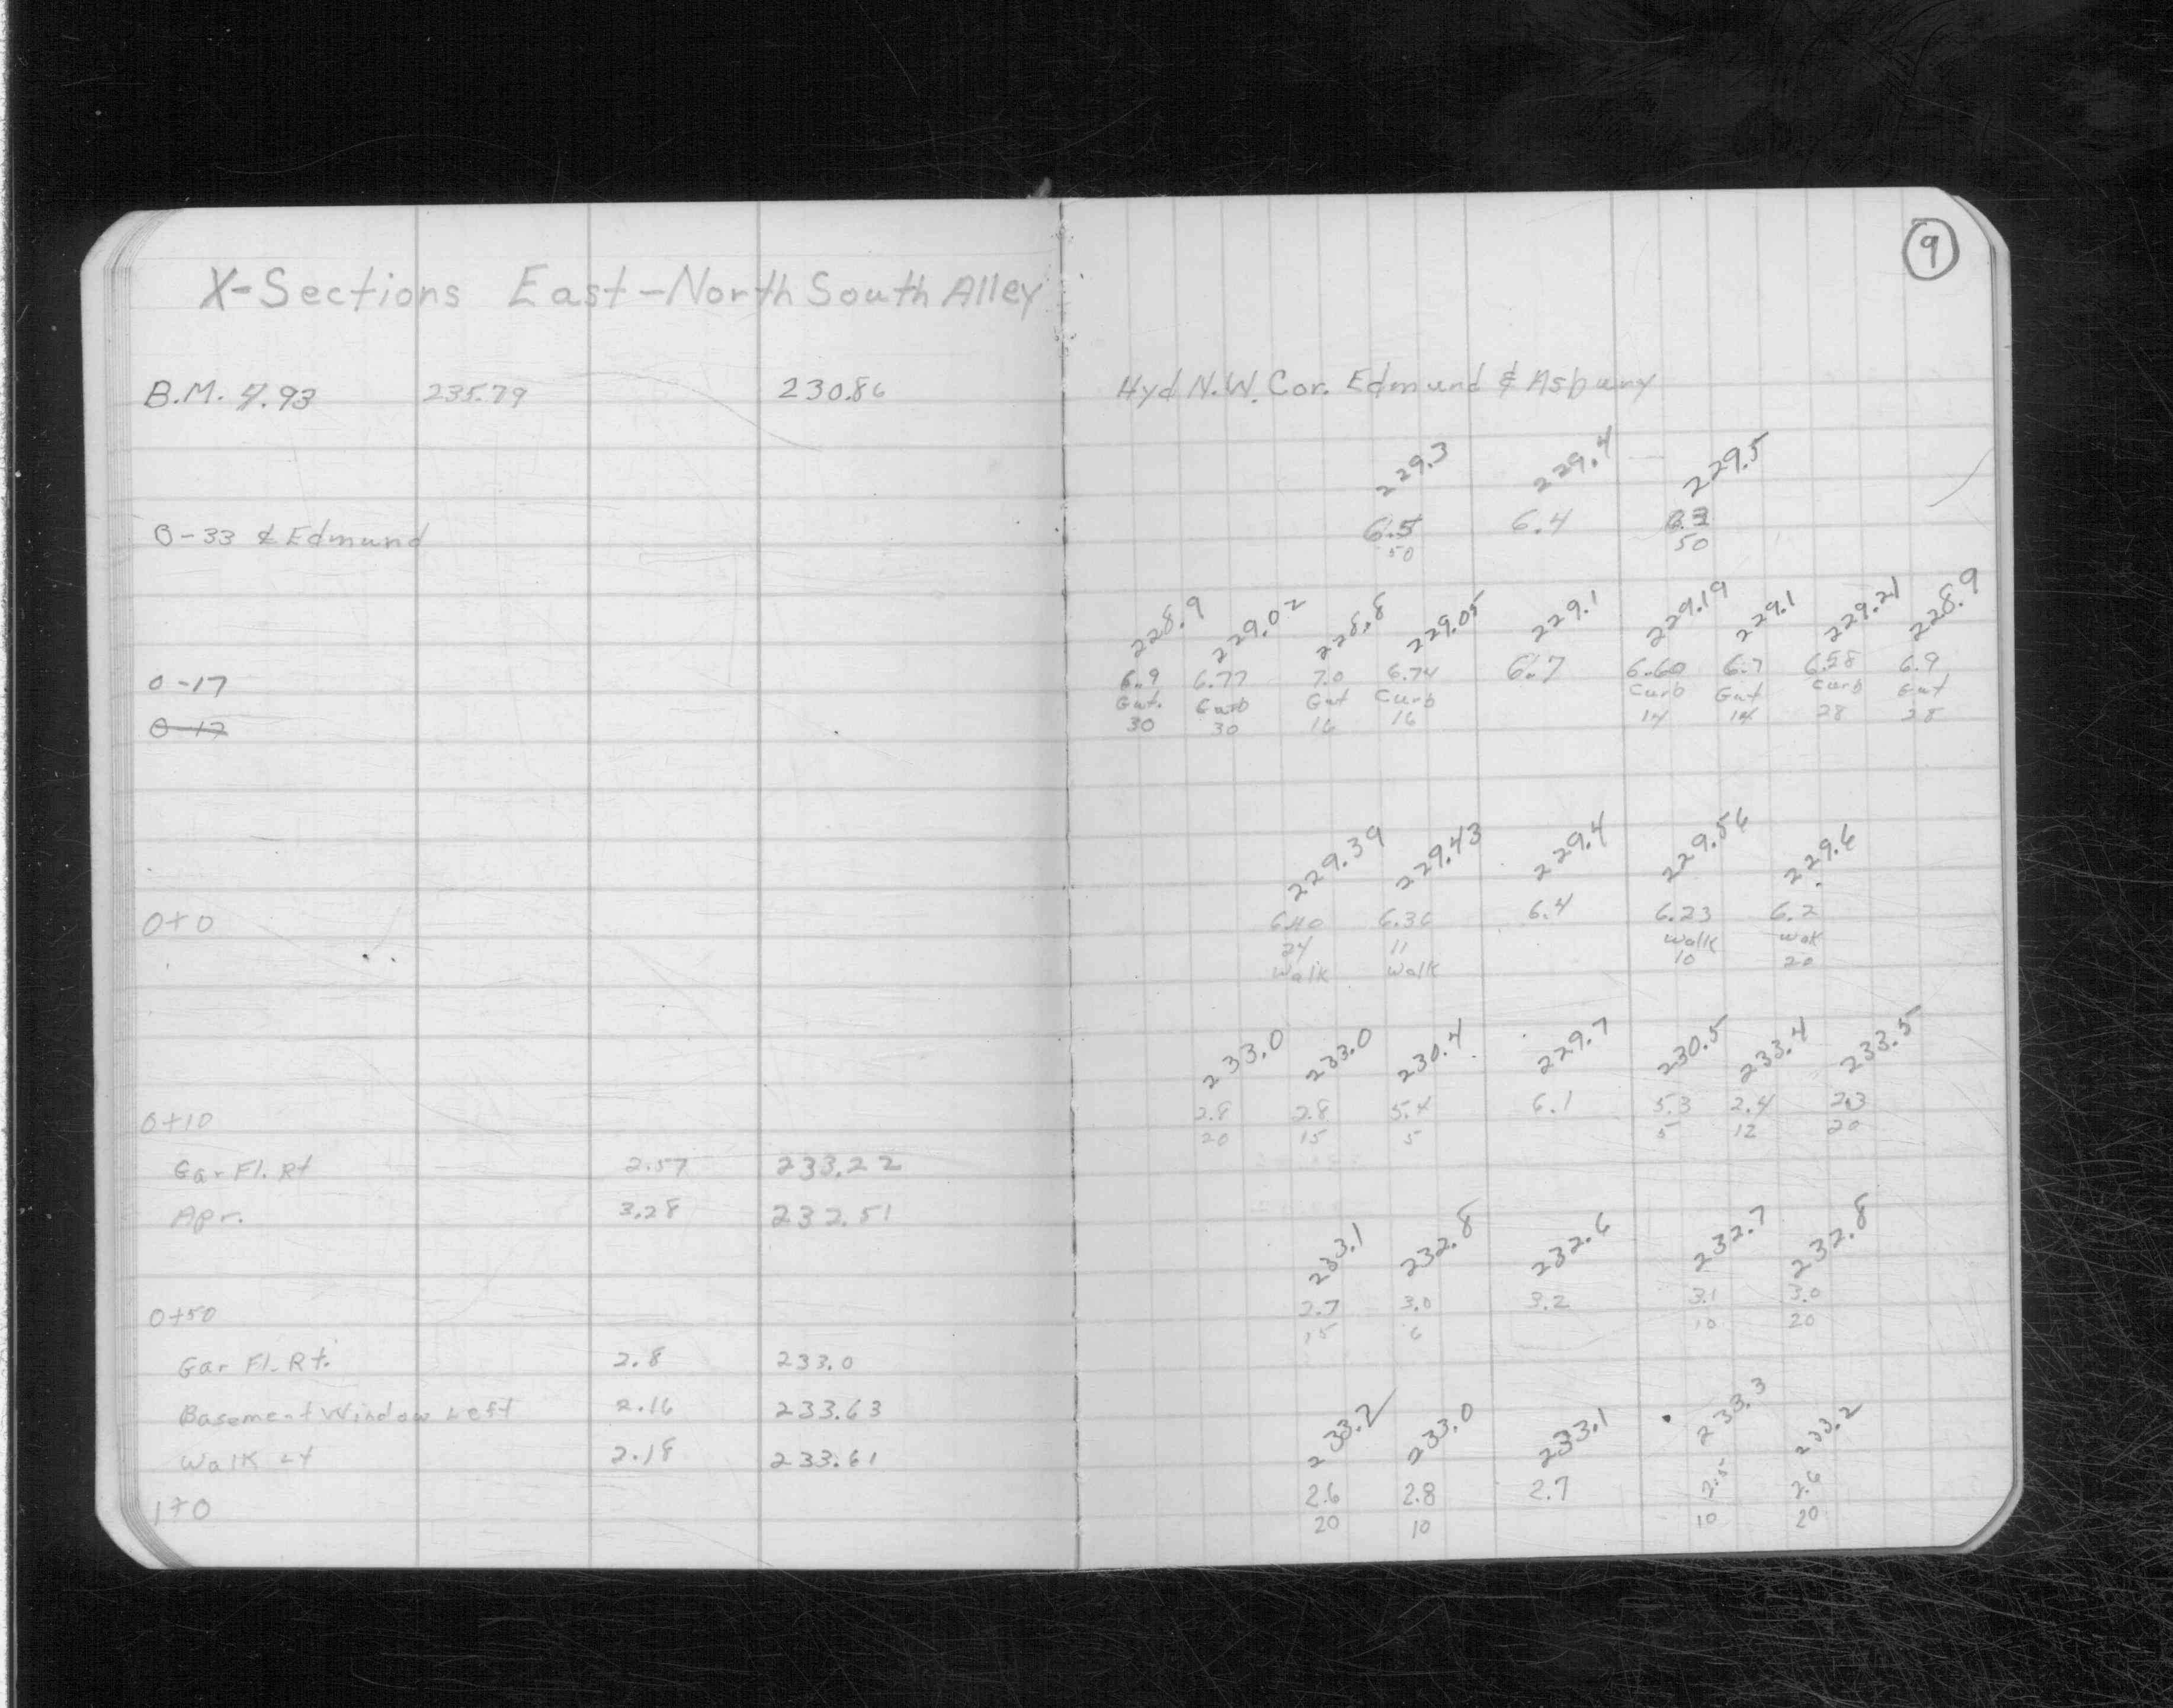 9
X-Sections East-North South Alley
B.M. 4.93 235.79 230.86 Hyd N.W. Cor. Edmund & Asbury
229.3 229.4 229.5
0-33 & Edmund 6.5 6.4 6.3
50 50
228.9 229.02 228.8 229.05 229.1 229.19 229.1 229.21 228.9
0-17 6.9 6.77 7.0 6.74 6.7 6.60 6.7 6.58 6.9
Gut. Curb Gut Curb Curb Gut Curb Gut
0-17 30 30 16 16 14 14 28 28
229.39 229.43 229.4 229.56 229.6
0+0 6.40 6.36 6.4 6.23 6.2
24 11 Walk Walk
Walk Walk 10 20
233.0 233.0 230.4 229.7 230.5 233.4 233.5
0+10 2.8 2.8 5.4 6.1 5.3 2.4 2.3
20 15 5 5 12 20
Gar Fl. Rt 2.57 233.22
Apr. 3.28 232.51
233.1 232.8 232.6 232.7 232.8
0+50 2.7 3.0 3.2 3.1 3.0
15 6 10 20
Gar Fl. Rt. 2.8 233.0
Basement Window Left 2.16 233.63
Walk Lt 2.18 233.61
233.2 233.0 233.1 233.3 233.2
1+0 2.6 2.8 2.7 2.5 2.6
20 10 10 20